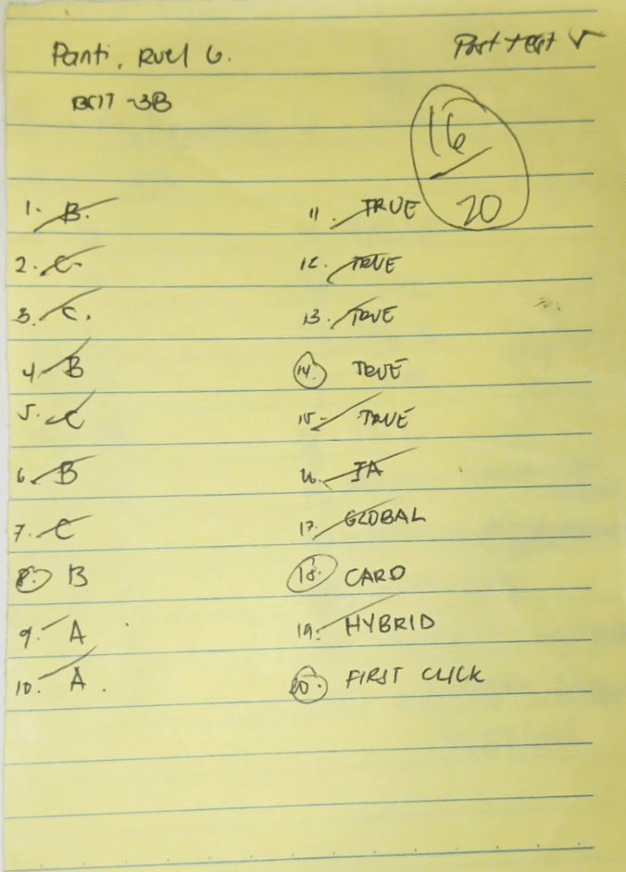 Panti, Ruel G.
Post test
BCIT -3B
16
20
1. B.
2. C.
3. C.
4. B
5. C
6. B
7. C
8. B
9. A
10. A.
11. TRUE
12. TRUE
13. TRUE
14. TRUE
15- TRUE
16. IA
17. GLOBAL
18. CARD
19. HYBRID
20. FIRST CLICK